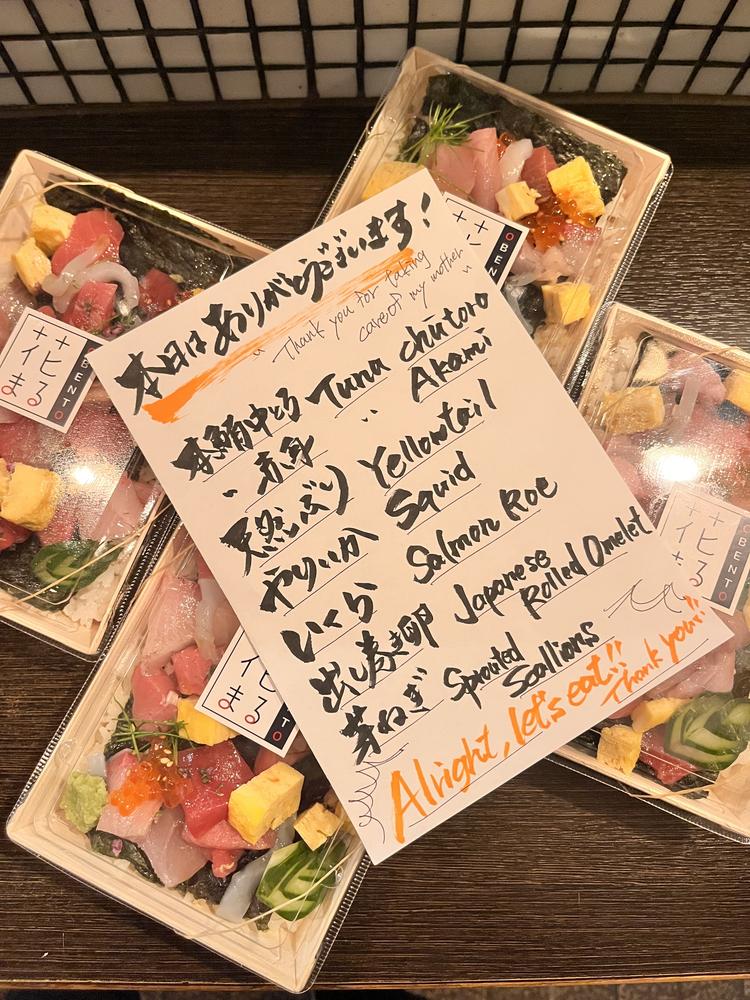 本日はありがとうございます!
"Thank you for taking
care of my mother"
本鮪中とろ Tuna chūtoro
〃 赤身 〃 Akami
天然ぶり Yellowtail
やりいか Squid
いくら Salmon Roe
出し巻き卵 Japanese
Rolled Omelet
芽ねぎ Sprouted
Scallions
Alright, let's eat!!
Thank you!!
花まる
BENTO
花
BENTO
花まる
BENTO
花まる
TO